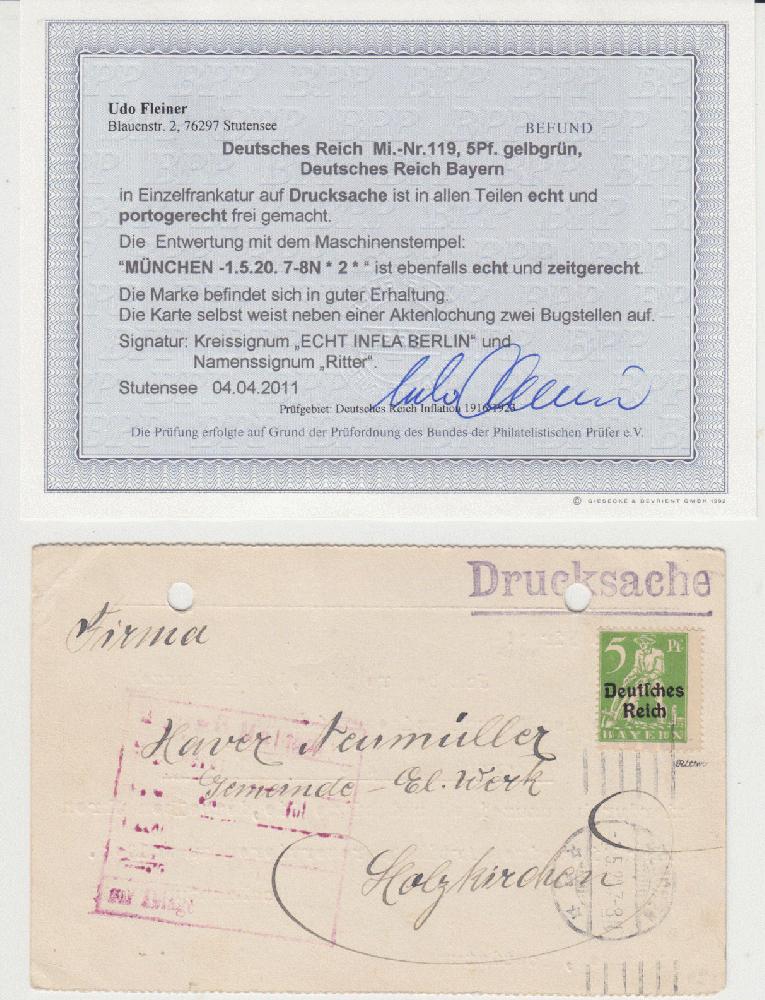 Udo Fleiner
Blauenstr. 2, 76297 Stutensee
BEFUND
Deutsches Reich Mi.-Nr.119, 5Pf. gelbgrün,
Deutsches Reich Bayern
in Einzelfrankatur auf Drucksache ist in allen Teilen echt und
portogerecht frei gemacht.
Die Entwertung mit dem Maschinenstempel:
"MÜNCHEN -1.5.20. 7-8N * 2 * " ist ebenfalls echt und zeitgerecht.
Die Marke befindet sich in guter Erhaltung.
Die Karte selbst weist neben einer Aktenlochung zwei Bugstellen auf.
Signatur: Kreissignum „ECHT INFLA BERLIN" und
Namenssignum „Ritter".
Stutensee 04.04.2011
Prüfgebiet: Deutsches Reich Inflation 1916-1923
Die Prüfung erfolgte auf Grund der Prüfordnung des Bundes der Philatelistischen Prüfer e.V.
© GIESECKE & DEVRIENT GMBH 1992
Drucksache
Firma
5 Pf
Deutsches
Reich
BAYERN
Xaver Neumüller
Gemeinde - El. Werk
Holzkirchen